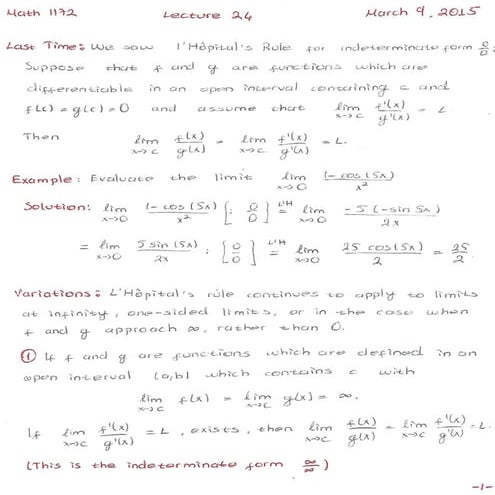 Math 1172 Lecture 24 March 9, 2015
Last Time: We saw l'Hôpital's Rule for indeterminate form 0/0:
Suppose that f and g are functions which are
differentiable in an open interval containing c and
f(c) = g(c) = 0 and assume that lim x→c f'(x)/g'(x) = L
Then lim x→c f(x)/g(x) = lim x→c f'(x)/g'(x) = L.
Example: Evaluate the limit lim x→0 (1-cos(5x))/x²
Solution: lim x→0 (1-cos(5x))/x² [: 0/0] L'H = lim x→0 -5(-sin 5x)/2x
= lim x→0 5 sin(5x)/2x : [0/0] L'H = lim x→0 25 cos(5x)/2 = 25/2
Variations: L'Hôpital's rule continues to apply to limits
at infinity, one-sided limits, or in the case when
f and g approach ∞, rather than 0.
① If f and g are functions which are defined in an
open interval (a,b) which contains c with
lim x→c f(x) = lim x→c g(x) = ∞.
If lim x→c f'(x)/g'(x) = L, exists, then lim x→c f(x)/g(x) = lim x→c f'(x)/g'(x) = L.
(This is the indeterminate form ∞/∞)
-1-